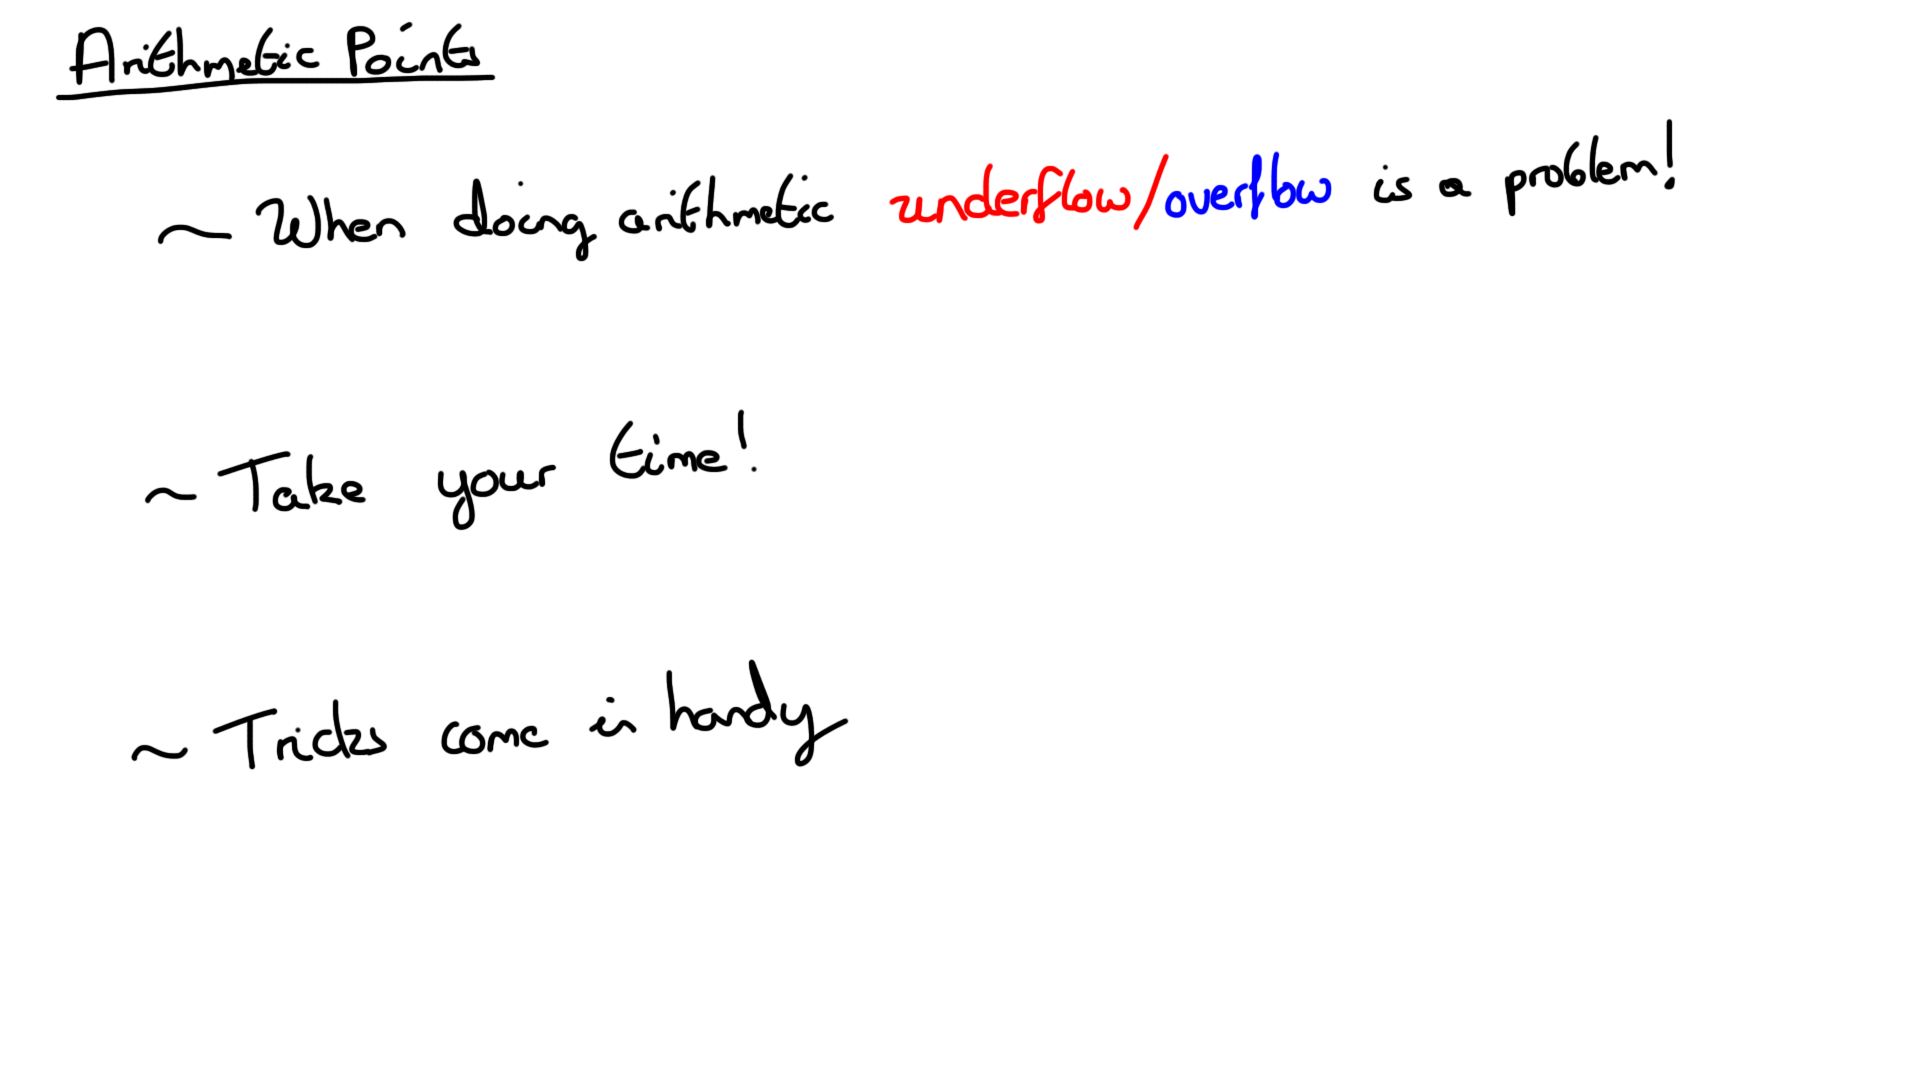 Arithmetic Points
~ When doing arithmetic underflow/overflow is a problem!
~ Take your time!
~ Tricks come in handy